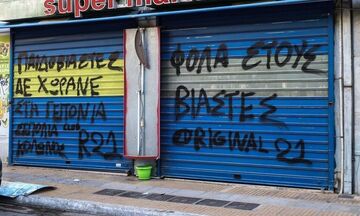 super mar
ΠΑΙΔΟΒΙΑΣΤΕΣ
ΔΕ ΧΩΡΑΝΕ
ΣΤΑ ΓΕΙΤΟΝΙΑ
ΣΕΠΟΛΙΑ ΚΑΙ
ΚΟΛΩΝΟΣ R21
ΦΟΛΑ ΣΤΟΥΣ
ΒΙΑΣΤΕΣ
ORIGINAL 21